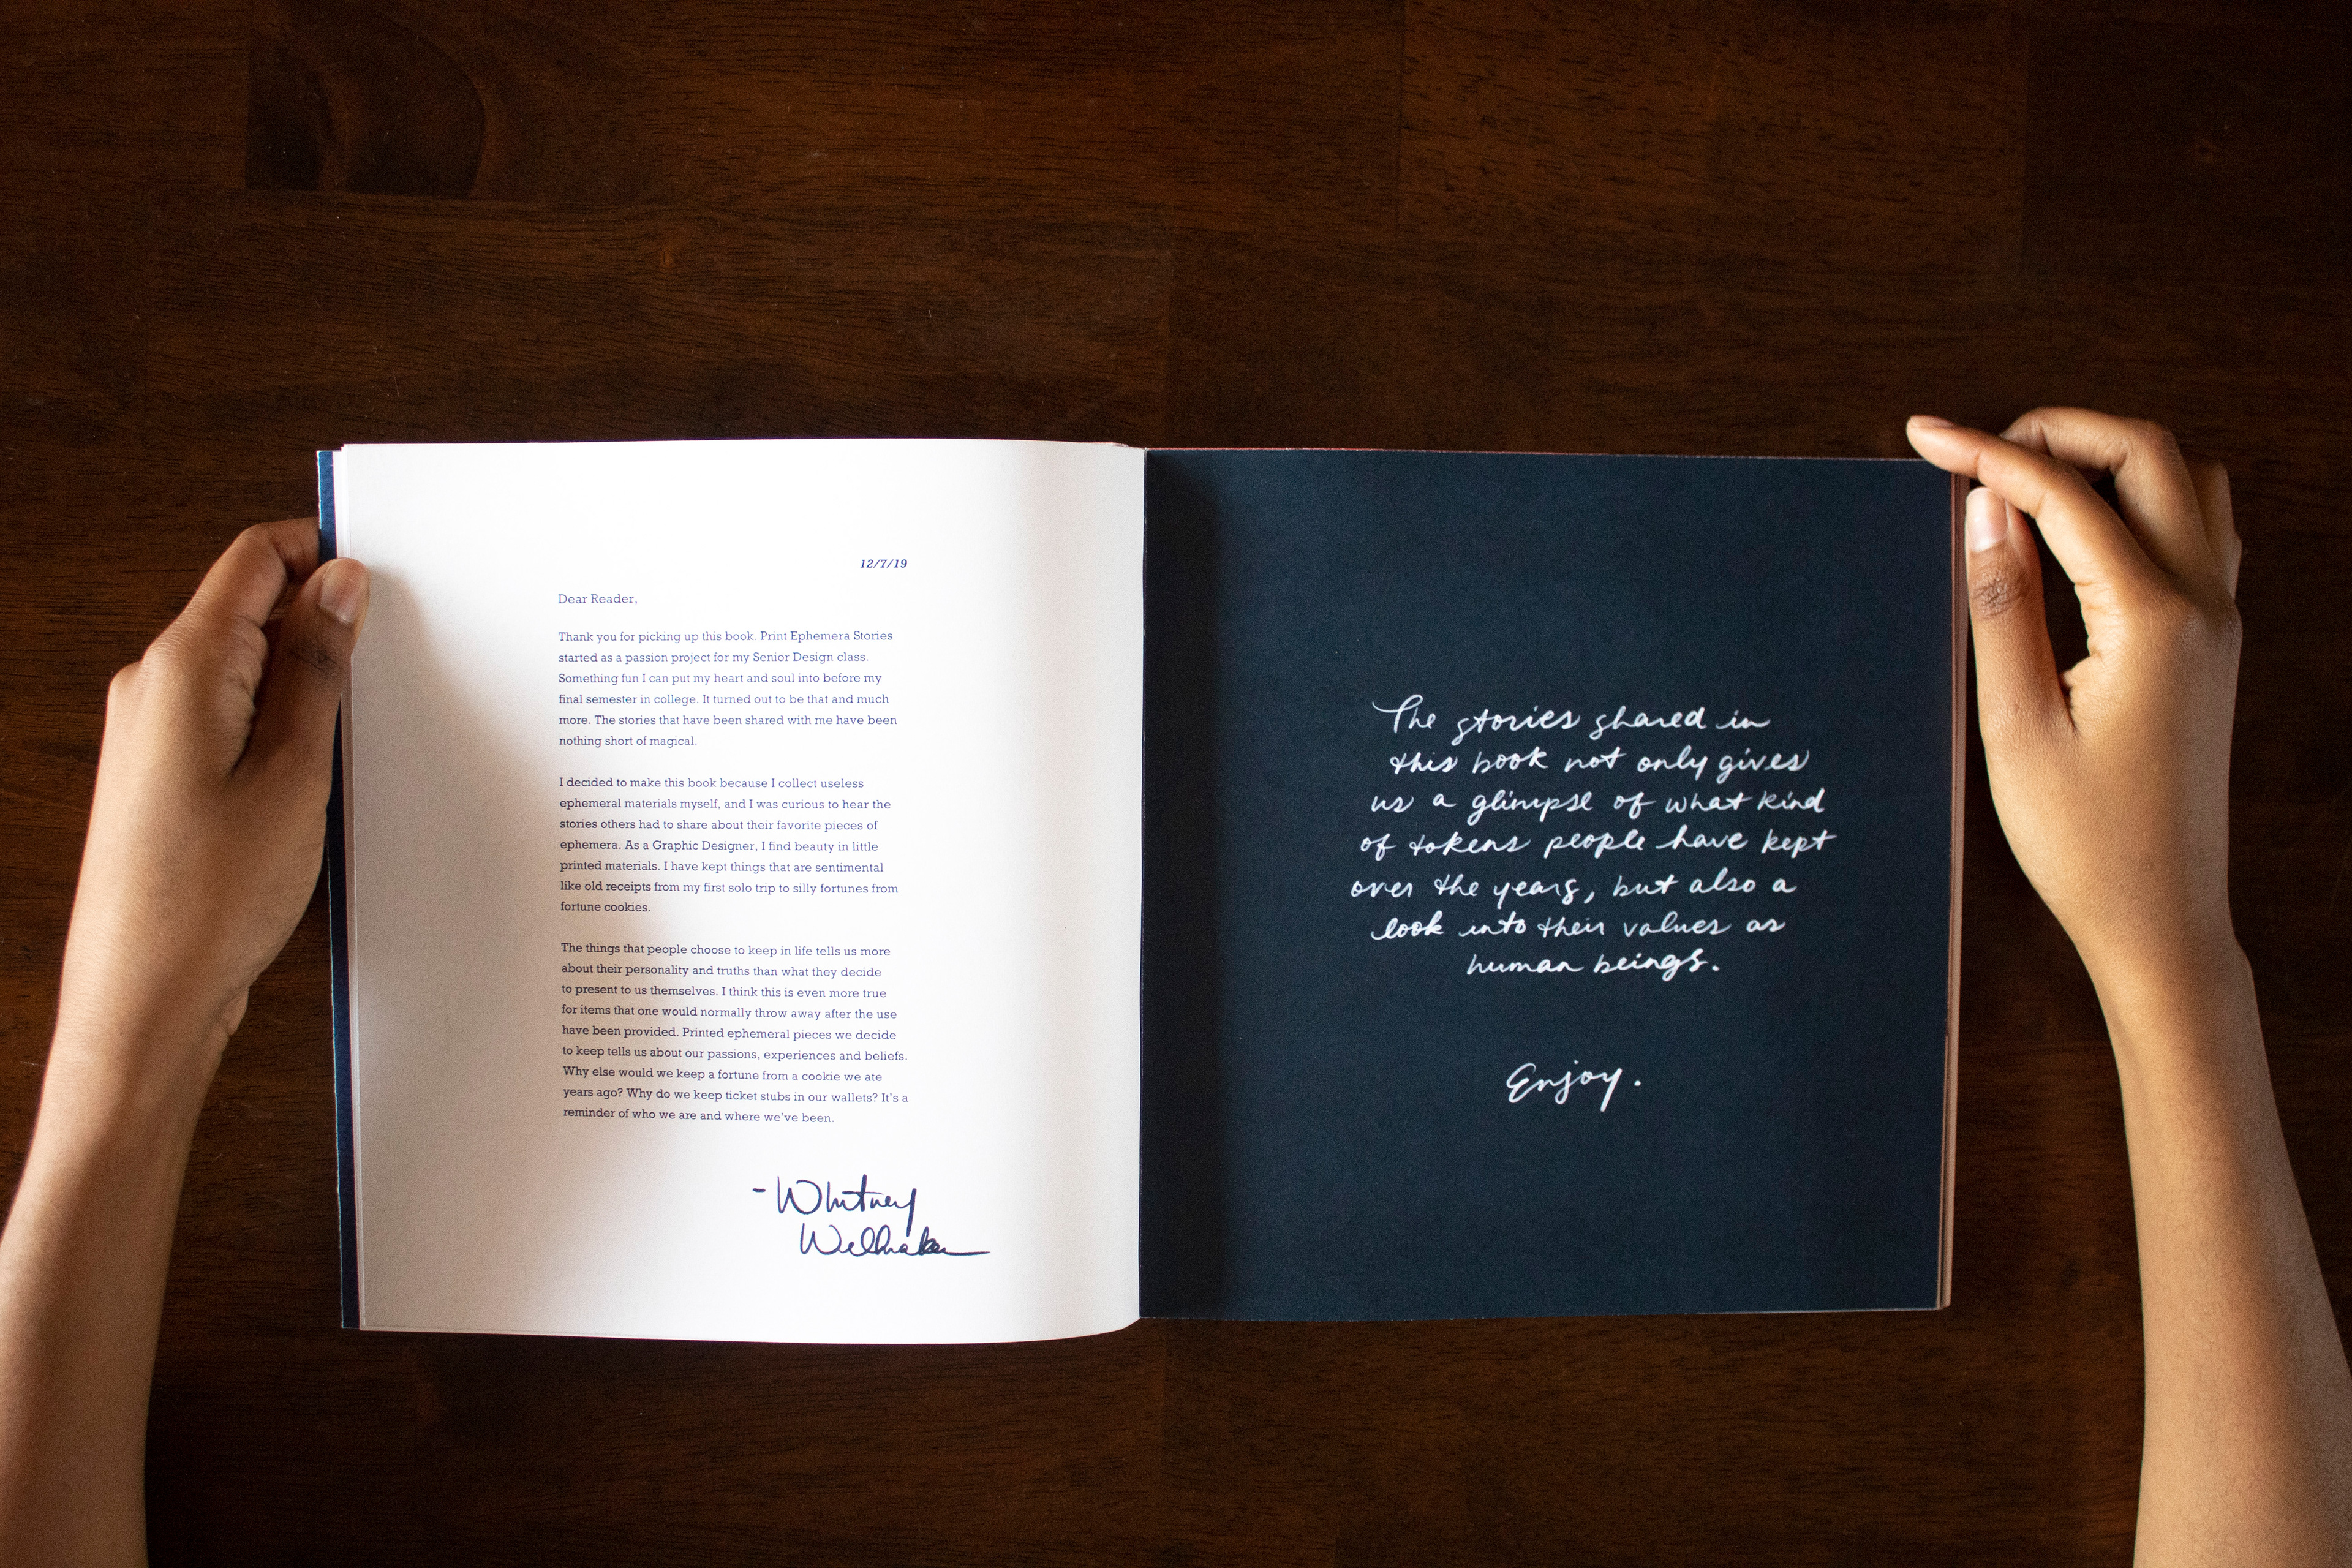 12/7/19
Dear Reader,
Thank you for picking up this book. Print Ephemera Stories
started as a passion project for my Senior Design class.
Something fun I can put my heart and soul into before my
final semester in college. It turned out to be that and much
more. The stories that have been shared with me have been
nothing short of magical.
I decided to make this book because I collect useless
ephemeral materials myself, and I was curious to hear the
stories others had to share about their favorite pieces of
ephemera. As a Graphic Designer, I find beauty in little
printed materials. I have kept things that are sentimental
like old receipts from my first solo trip to silly fortunes from
fortune cookies.
The things that people choose to keep in life tells us more
about their personality and truths than what they decide
to present to us themselves. I think this is even more true
for items that one would normally throw away after the use
have been provided. Printed ephemeral pieces we decide
to keep tells us about our passions, experiences and beliefs.
Why else would we keep a fortune from a cookie we ate
years ago? Why do we keep ticket stubs in our wallets? It's a
reminder of who we are and where we've been.
-Whitney
The stories shared in
this book not only gives
us a glimpse of what kind
of tokens people have kept
over the years, but also a
look into their values as
human beings.
Enjoy.